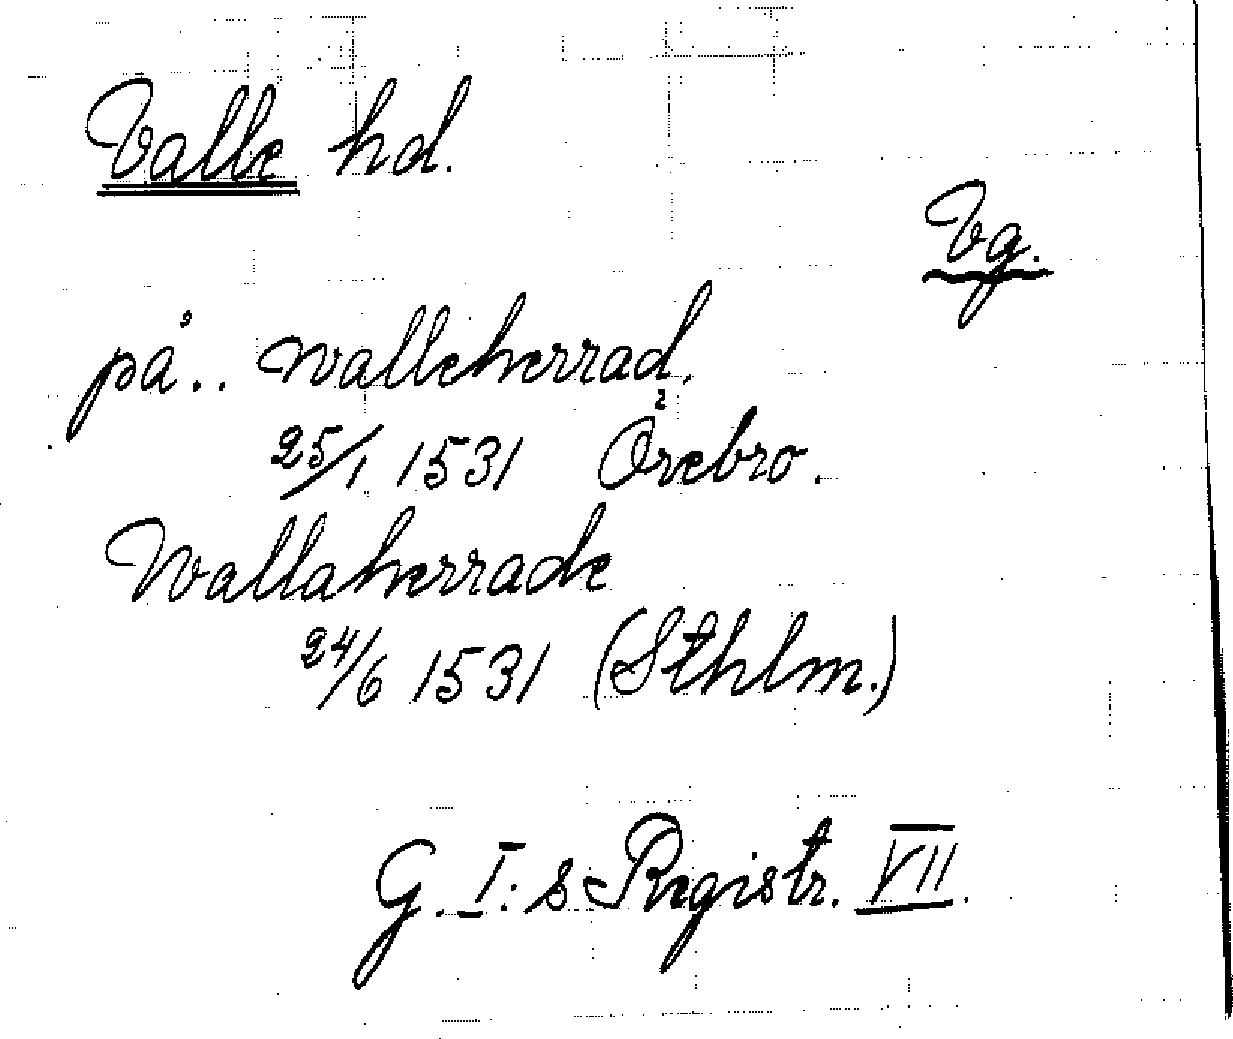 Valle hd.
Vg.
på.. walleherrad,
25/1 1531 Örebro.
Wallaherrade
24/6 1531 (Sthlm.)
G. I:s Registr. VII.